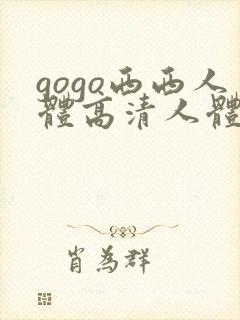 gogo西西人
體高清人體
肖為群